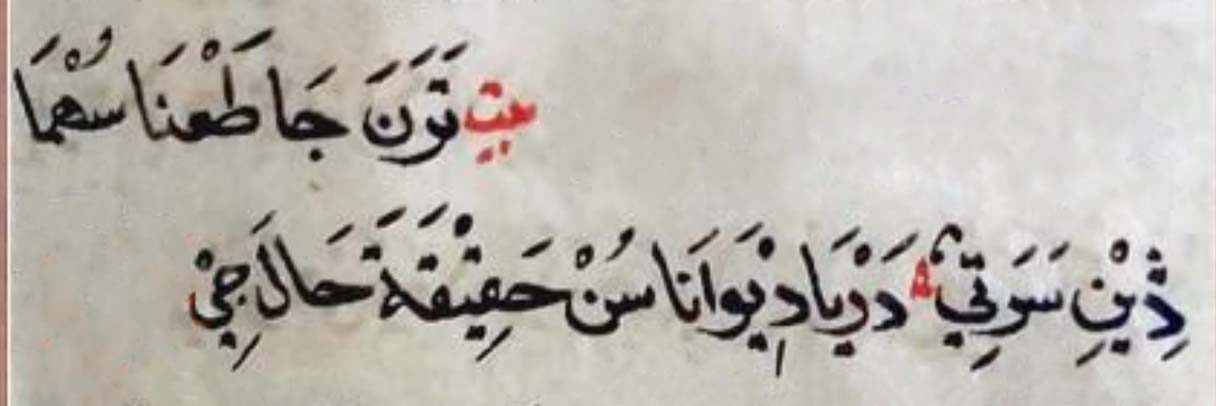 بيت تَوَنَ جَا طَعْنَا سُهْمَا
ڎِيْنِ سَوَتِيّ دَرْيَا دِيْوَانَا سُنْ حَقِيْقَةَ حَالَ جِيْ